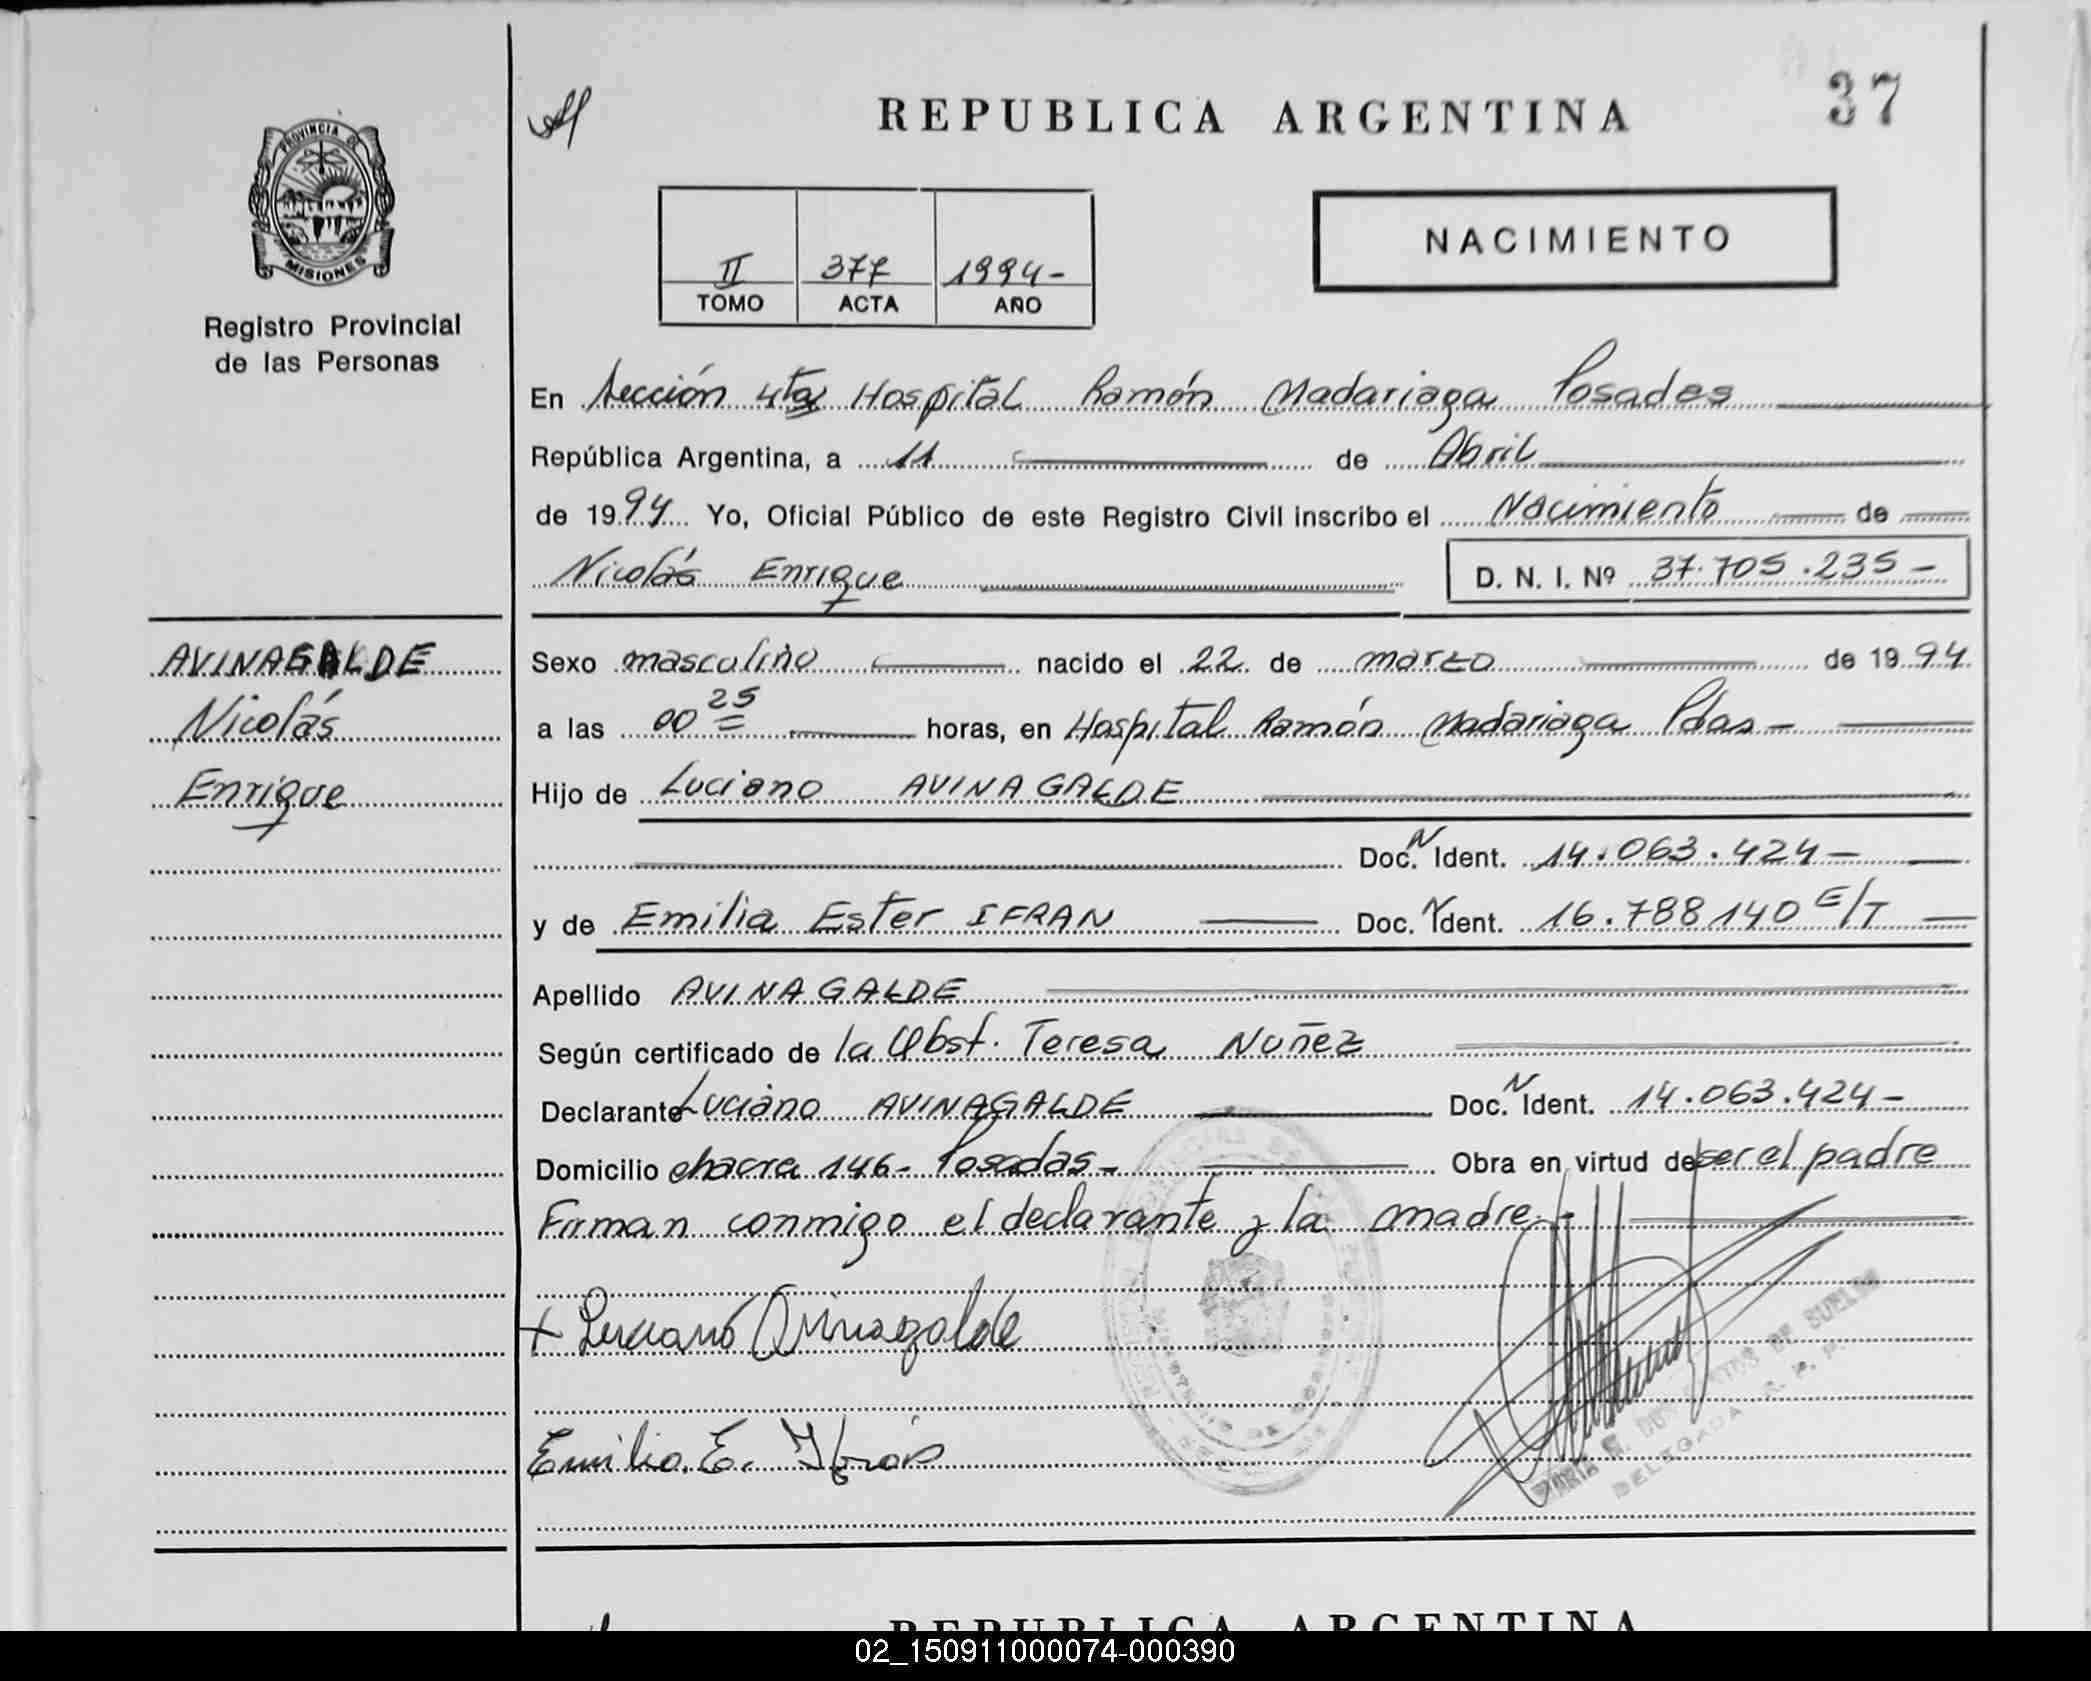 REPUBLICA ARGENTINA
37
PROVINCIA DE
MISIONES
Registro Provincial
de las Personas
II 377 1994-
TOMO ACTA AÑO
NACIMIENTO
En Sección 4ta Hospital Ramón Madariaga Posadas
República Argentina, a 11 de Abril
de 1994 Yo, Oficial Público de este Registro Civil inscribo el Nacimiento de
Nicolás Enrique D. N. I. Nº 37.705.235-
AVINAGALDE
Nicolás
Enrique
Sexo masculino nacido el 22 de marzo de 1994
a las 00 25 horas, en Hospital Ramón Madariaga Pdas-
Hijo de Luciano AVINAGALDE
Doc. N Ident. 14.063.424-
y de Emilia Ester IFRAN Doc. N Ident. 16.788140 E/T
Apellido AVINAGALDE
Según certificado de la Obst. Teresa Nuñez
Declarante Luciano AVINAGALDE Doc. N Ident. 14.063.424-
Domicilio chacra 146- Posadas- Obra en virtud de ser el padre
Firman conmigo el declarante y la madre.-
+ Luciano Avinagalde
Emilia E. Ifran
DE
DELEGADA R. P. P.
REPUBLICA ARGENTINA
02_150911000074-000390